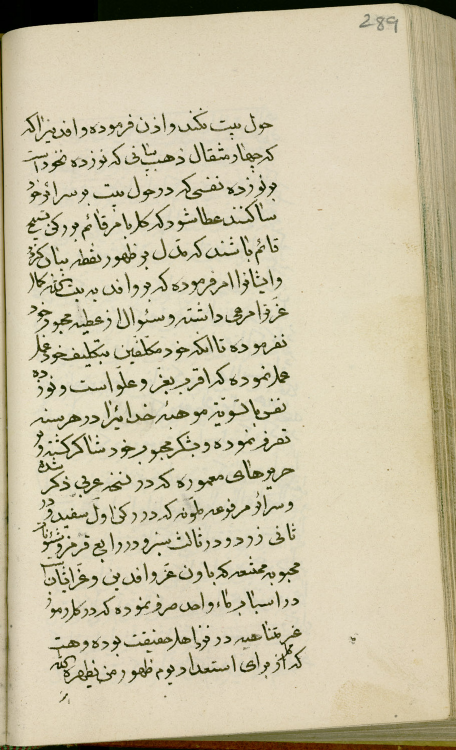 289
حول بیت نکند و اذن فرموده وافدین را که
که چهار مثقال ذهب بیانی که نوزده نخود است
بر نوزده نفسی که در حول بیت بر سرائر خود
ساکنند عطا شود که کل بامر قائم بر رکن تسبیح
قائم باشند که مدل بر ظهور نقطه بیان
و ایشانرا امر فرموده که بر وافدین بیت کمال
عز را مرعی داشته و سئوال از عطیه محبوب خود
نفرموده تا آنکه خود مکلفین بتکلیف خود عمل
عمل نموده که اقرب بعز و علو است و نوزده
نفس بالسویه موهبة خدائیرا در هر سنه
تصرف نموده و بشکر محبوب خود شاکر گشته و بر
حریرهای معموره که در نسخه عربی ذکر شده
و سرائر مرفوعه ملونه که در رکن اول سفید و در
ثانی زرد و در ثالث سبز و در رابع قرمز و شئونات
محبوبه ممتنعه که باون عز وافدین و عزایشان است
در اسباب ماء واحد صرف نموده که در کل رموز
غیر متناهیه در نزد اهل حقیقت بوده و هست
که کل از برای استعداد یوم ظهور من یظهره الله